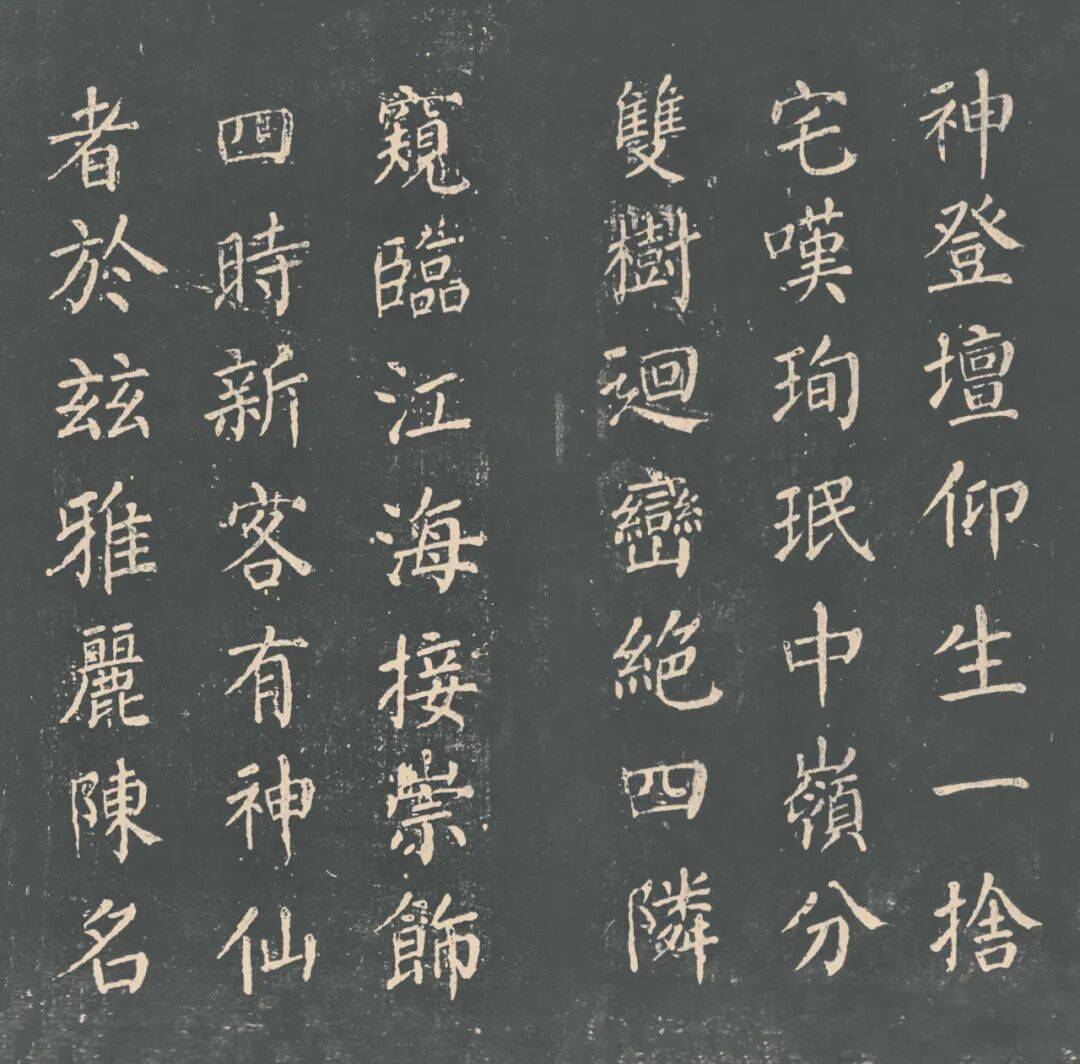 神登壇仰生一捨
宅嘆珣珉中嶺分
雙樹迴巒絕四隣
窺臨江海接崇飾
四時新客有神仙
者於茲雅麗陳名